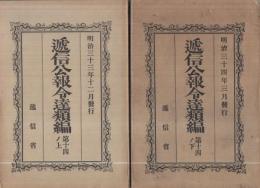 明治三十三年十二月發行
遞信公報令達類編
第十四ノ上
遞信省
明治三十四年三月發行
遞信公報令達類編
第十四ノ下
遞信省